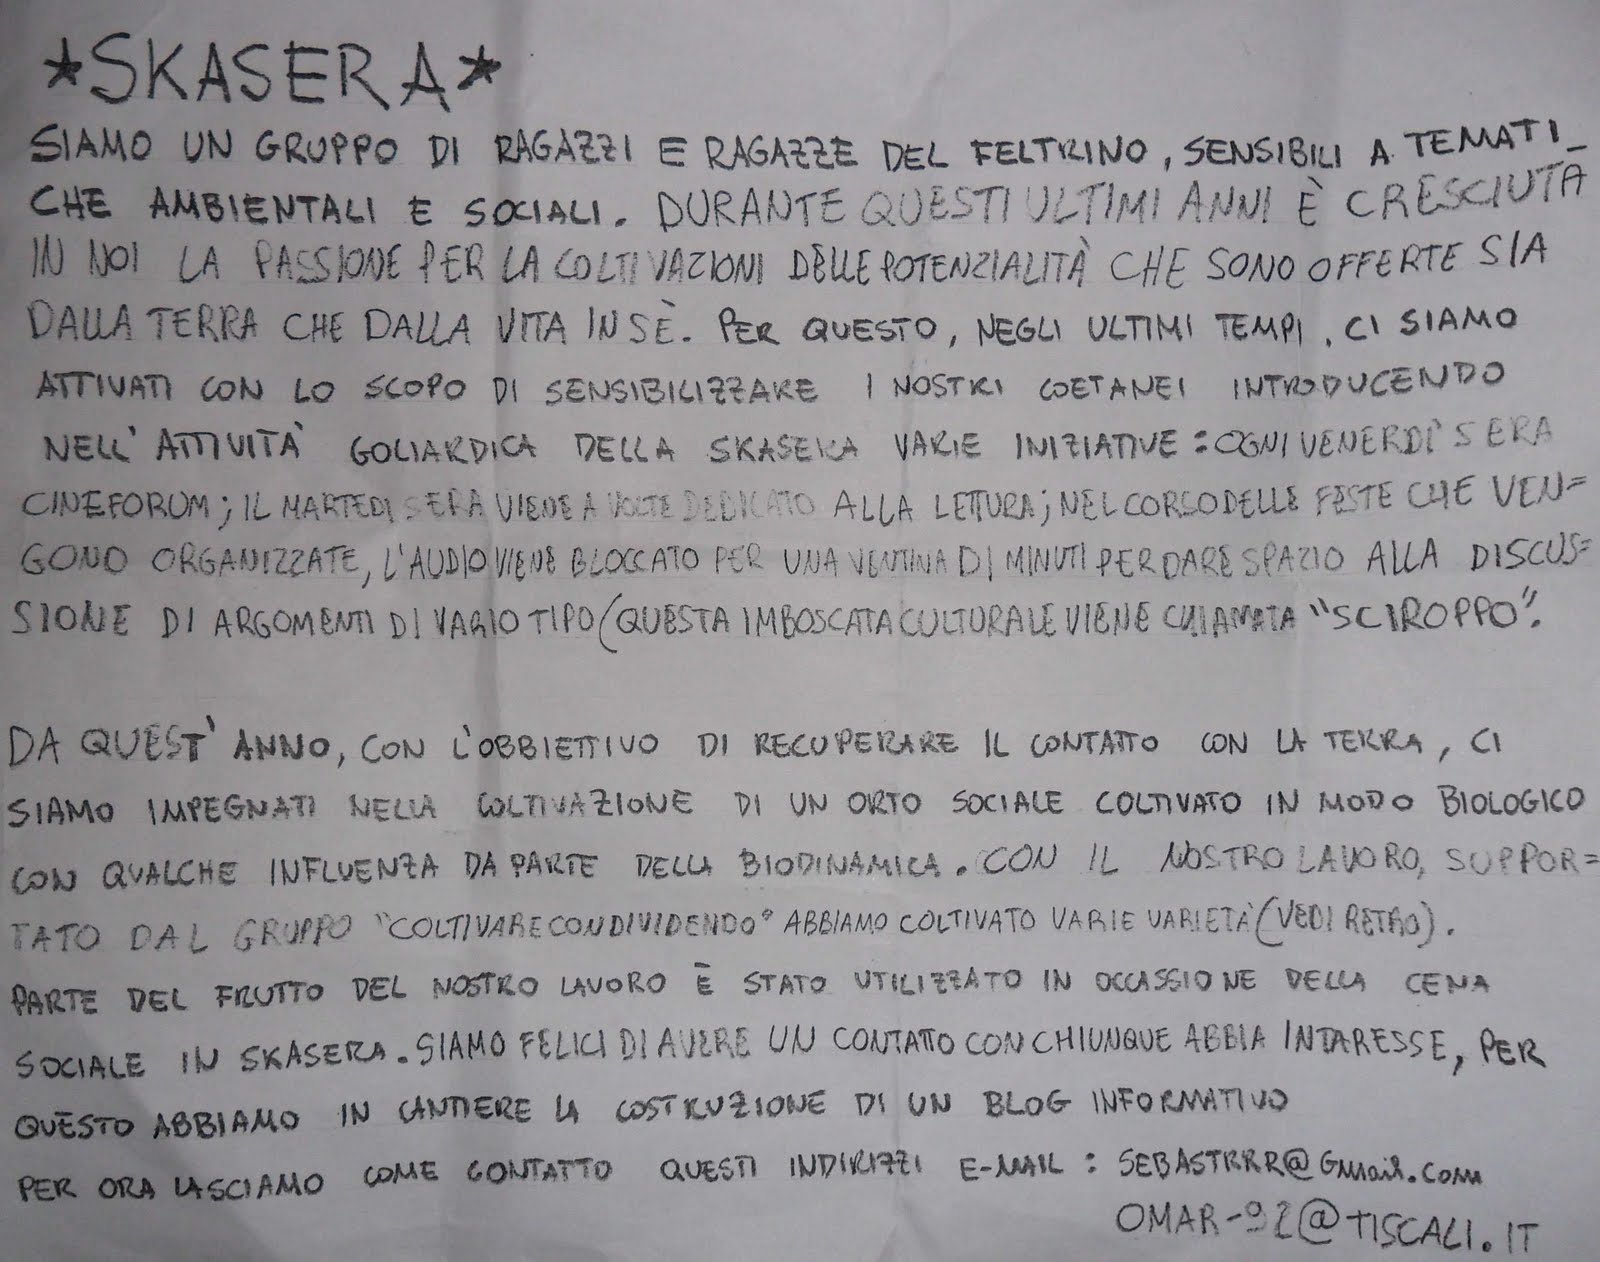 *SKASERA*
SIAMO UN GRUPPO DI RAGAZZI E RAGAZZE DEL FELTRINO, SENSIBILI A TEMATI_
CHE AMBIENTALI E SOCIALI. DURANTE QUESTI ULTIMI ANNI È CRESCIUTA
IN NOI LA PASSIONE PER LA COLTIVAZIONI DELLE POTENZIALITÀ CHE SONO OFFERTE SIA
DALLA TERRA CHE DALLA VITA IN SÈ. PER QUESTO, NEGLI ULTIMI TEMPI, CI SIAMO
ATTIVATI CON LO SCOPO DI SENSIBILIZZARE I NOSTRI COETANEI INTRODUCENDO
NELL'ATTIVITÀ GOLIARDICA DELLA SKASERA VARIE INIZIATIVE: OGNI VENERDÌ SERA
CINEFORUM; IL MARTEDI SERA VIENE A VOLTE DEDICATO ALLA LETTURA; NEL CORSO DELLE FESTE CHE VEN=
GONO ORGANIZZATE, L'AUDIO VIENE BLOCCATO PER UNA VENTINA DI MINUTI PER DARE SPAZIO ALLA DISCUS=
SIONE DI ARGOMENTI DI VARIO TIPO (QUESTA IMBOSCATA CULTURALE VIENE CHIAMATA "SCIROPPO".
DA QUEST'ANNO, CON L'OBBIETTIVO DI RECUPERARE IL CONTATTO CON LA TERRA, CI
SIAMO IMPEGNATI NELLA COLTIVAZIONE DI UN ORTO SOCIALE COLTIVATO IN MODO BIOLOGICO
CON QUALCHE INFLUENZA DA PARTE DELLA BIODINAMICA. CON IL NOSTRO LAVORO, SUPPOR=
TATO DAL GRUPPO "COLTIVARE CONDIVIDENDO" ABBIAMO COLTIVATO VARIE VARIETÀ (VEDI RETRO).
PARTE DEL FRUTTO DEL NOSTRO LAVORO È STATO UTILIZZATO IN OCCASSIONE DELLA CENA
SOCIALE IN SKASERA. SIAMO FELICI DI AVERE UN CONTATTO CON CHIUNQUE ABBIA INTARESSE, PER
QUESTO ABBIAMO IN CANTIERE LA COSTRUZIONE DI UN BLOG INFORMATIVO
PER ORA LASCIAMO COME CONTATTO QUESTI INDIRIZZI E-MAIL : SEBASTRRR@Gmail.com
OMAR-92@TISCALI.IT